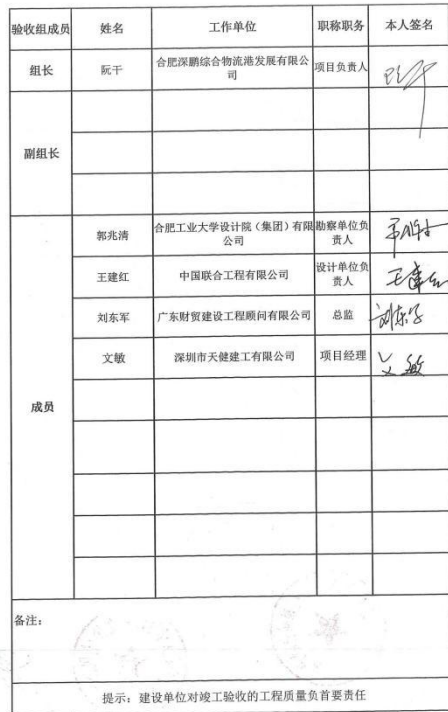 验收组成员 姓名 工作单位 职称职务 本人签名
组长 阮干 合肥深鹏综合物流港发展有限公司 项目负责人
副组长
成员
郭兆清 合肥工业大学设计院（集团）有限公司 勘察单位负责人
王建红 中国联合工程有限公司 设计单位负责人 王建红
刘东军 广东财贸建设工程顾问有限公司 总监 刘东军
文敏 深圳市天健建工有限公司 项目经理 文敏
备注：
提示：建设单位对竣工验收的工程质量负首要责任